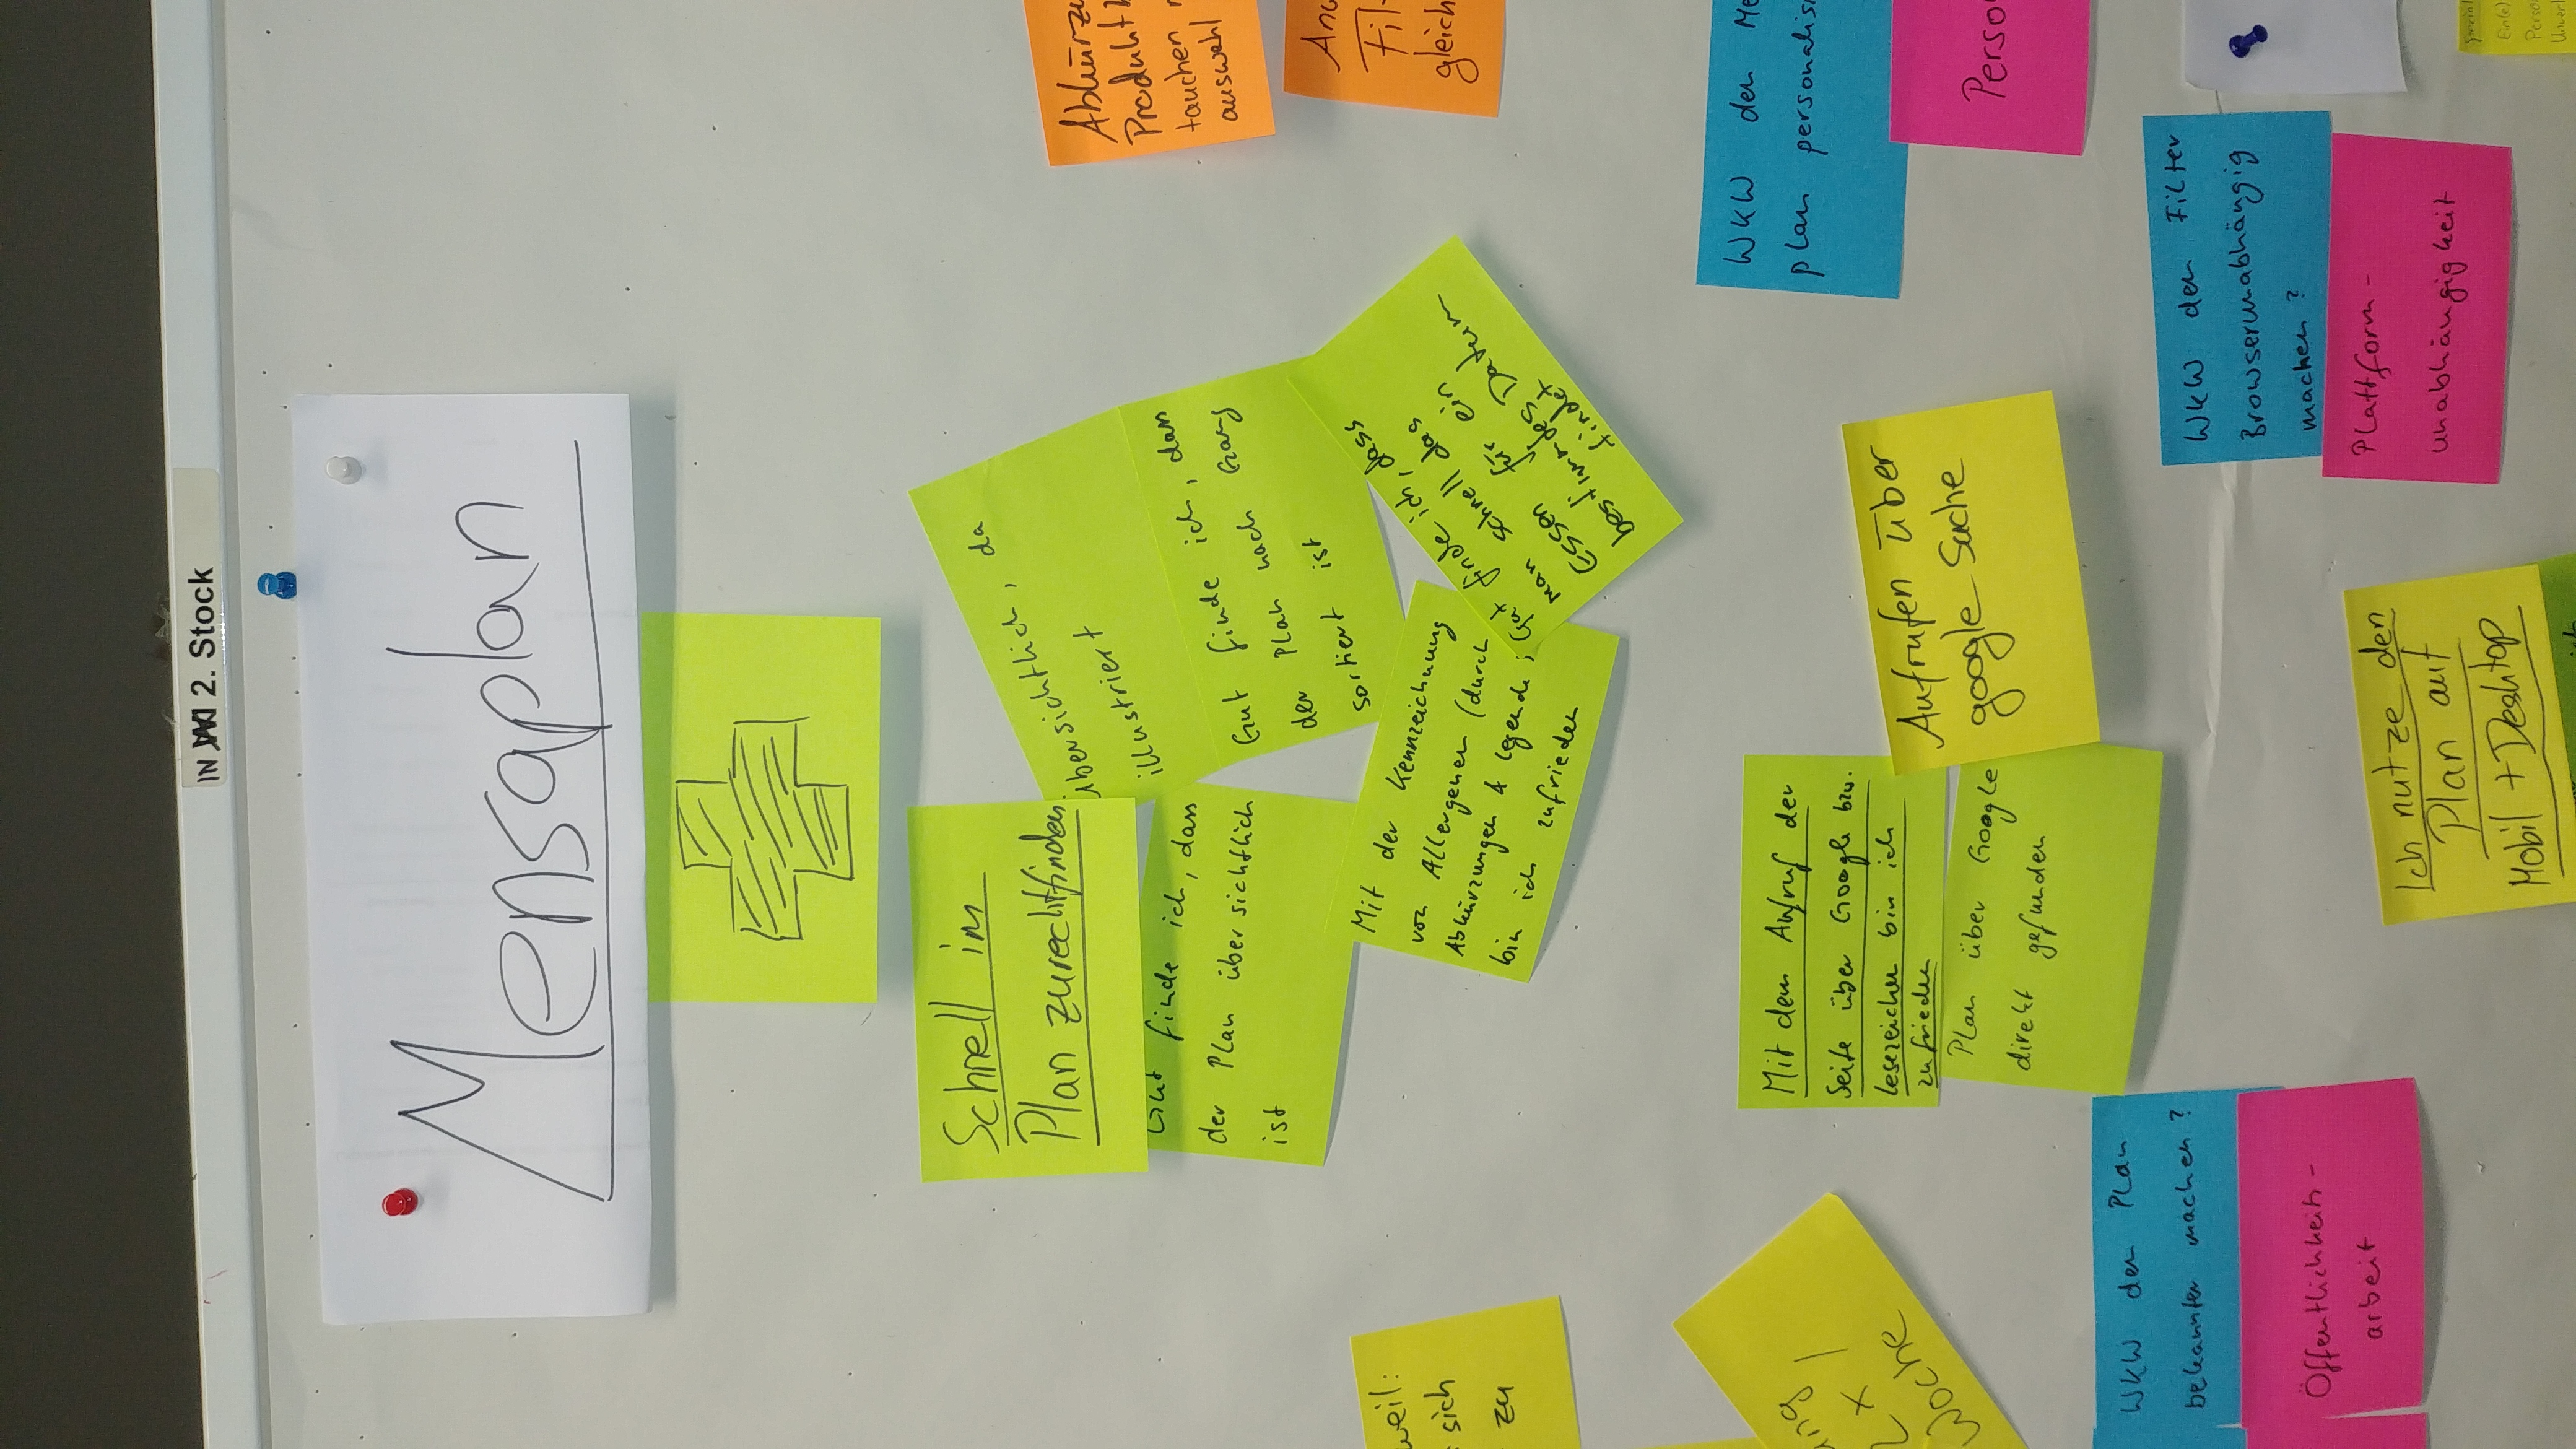 IN WI 2. Stock
Mensaplan
Schnell im
Plan zurechtfinden
übersichtlich, da
illustriert
Gut finde ich, dass
der Plan übersichtlich
ist
Gut finde ich, dass
der Plan nach Gang
sortiert ist
Mit der Kennzeichnung
von Allergenen (durch
Abkürzungen & Legende)
bin ich zufrieden
Gut finde ich, dass
man schnell das
Essen für ein
bestimmdes Datum
findet
Produkt
tauchen
auswahl
gleich
weil:
sich
zu
2 x /
Woche
Mit dem Aufruf der
Seite über Google bzw.
Lesezeichen bin ich
zufrieden
Plan über Google
direkt gefunden
Aufrufen über
google Suche
WKW den
plan
WKW den Plan
bekannter machen?
Öffentlichkeits-
arbeit
WKW den Filter
Browserunabhängig
machen?
Plattform-
unabhängigkeit
Ich nutze den
Plan auf
Mobil + Desktop